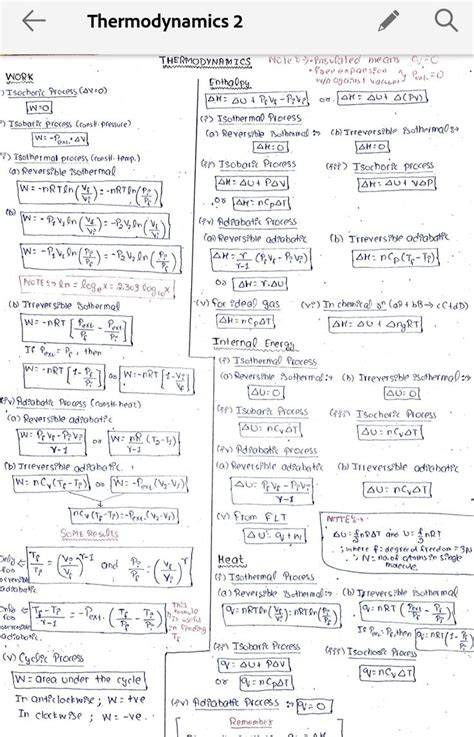 Thermodynamics 2
THERMODYNAMICS
Note :→ • Insulated means q=0
• free expansion
or against vacuum } Pext.=0
WORK
i) Isochoric Process (ΔV=0)
W=0
Isobaric process (const. pressure)
W = -Pext.ΔV
Isothermal process (const. temp.)
(a) Reversible isothermal
W = -nRT ln(Vf/Vi) = -nRT ln(Pi/Pf)
(b)
W = -PiVi ln(Vf/Vi) = -PiVi ln(Vf/Vi)
NOTE :→ ln = logex = 2.303 log10x
(b) Irreversible isothermal
W = -nRT [Pext/Pf - Pext/Pi]
If Pext = Pf, then
W = -nRT [1 - Pf/Pi] or W = -nRT [1 - Vi/Vf]
(iv) Adiabatic Process (const. heat)
(a) Reversible adiabatic
W = PfVf - PiVi / γ-1 or W = nR/γ-1 (T2-T1)
(b) Irreversible adiabatic.
W = nCv(Tf-Ti) or W = -Pext.(V2-V1)
nCv(Tf-Ti) = -Pext.(V2-V1)
Some Results
Only for reversible adiabatic
Tf/Ti = (Vi/Vf)γ-1 and Pf/Pi = (Vi/Vf)γ
Only for irreversible adiabatic.
Tf-Ti/γ-1 = -Pext.(Tf/Pf - Ti/Pi)
This formula is useful in finding Tf
(v) Cyclic Process
W = area under the cycle
In anticlockwise ; W = +ve
In clockwise ; W = -ve.
Enthalpy
ΔH = ΔU + PfVf - PiVi or ΔH = ΔU + Δ(PV)
(i) Isothermal Process
(a) Reversible isothermal :→ (b) Irreversible isothermal :→
ΔH = 0 ΔH = 0
(ii) Isobaric Process (iii) Isochoric process
ΔH = ΔU + PΔV ΔH = ΔU + VΔP
or ΔH = nCpΔT
(iv) Adiabatic Process
(a) Reversible adiabatic (b) Irreversible adiabatic
ΔH = γ/γ-1 (PfVf - PiVi) ΔH = nCp(Tf-Ti)
or ΔH = γ.ΔU
(v) For ideal gas (vi) In chemical
ΔH = nCpΔT ΔH = ΔU + ΔngRT
Internal Energy
(i) Isothermal Process
(a) Reversible isothermal :→ (b) Irreversible isothermal :→
ΔU = 0 ΔU = 0
(ii) Isobaric Process (iii) Isochoric Process
ΔU = nCvΔT ΔU = nCvΔT
(iv) Adiabatic process
(a) Reversible adiabatic (b) Irreversible adiabatic
ΔU = PfVf - PiVi / γ-1 ΔU = nCvΔT
(v) From FLT
ΔU = q + w
NOTE :→
ΔU = f/2 nRΔT and U = f/2 nRT
; where f = degree of freedom = 3N
; N = no. of atoms in single molecule.
Heat
(i) Isothermal Process
(a) Reversible isothermal :→ (b) Irreversible isothermal
q = nRT ln(Vf/Vi) = nRT ln(Pi/Pf) q = nRT (Pext/Pf - Pext/Pi)
If Pext = Pf, then q = nRT (1 - Pf/Pi)
(ii) Isobaric Process (iii) Isochoric Process
q = ΔU + PΔV q = nCvΔT
or q = nCpΔT
(iv) Adiabatic Process :→ q = 0
Remember